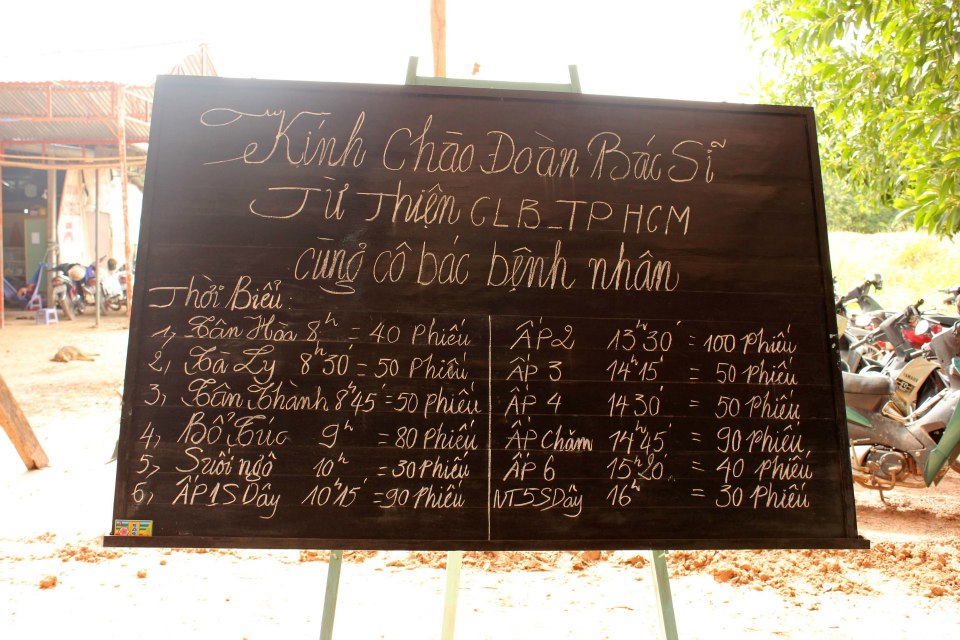 Kính Chào Đoàn Bác Sĩ
Từ Thiện CLB_TP HCM
cùng cô bác bệnh nhân
Thời Biểu:
1, Tân Hòa 8h = 40 Phiếu
2, Tà Ly 8h30' = 50 Phiếu
3, Tân Thành 8h45' = 50 Phiếu
4, Bổ Túc 9h = 80 Phiếu
5, Suối ngô 10h = 30 Phiếu
6, ẤP 1 S Dây 10h15' = 90 Phiếu
ẤP 2 13h30' = 100 Phiếu
ẤP 3 14h15' = 50 Phiếu
ẤP 4 14h30' = 50 Phiếu
ẤP Chăm 14h45' = 90 Phiếu
ẤP 6 15h20' = 40 Phiếu
NT5 S Dây 16h = 30 Phiếu